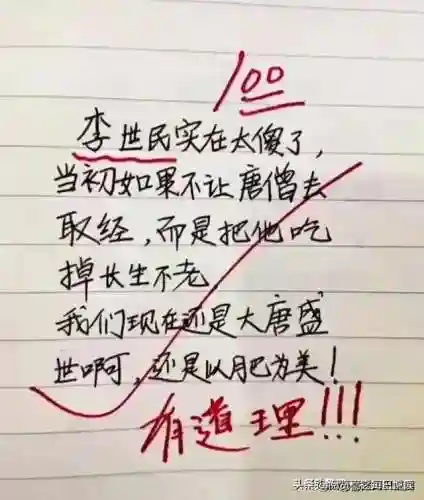 100
李世民实在太傻了，
当初如果不让唐僧去
取经，而是把他吃
掉长生不老，
我们现在还是大唐盛
世啊，还是以肥为美！
有道理!!!